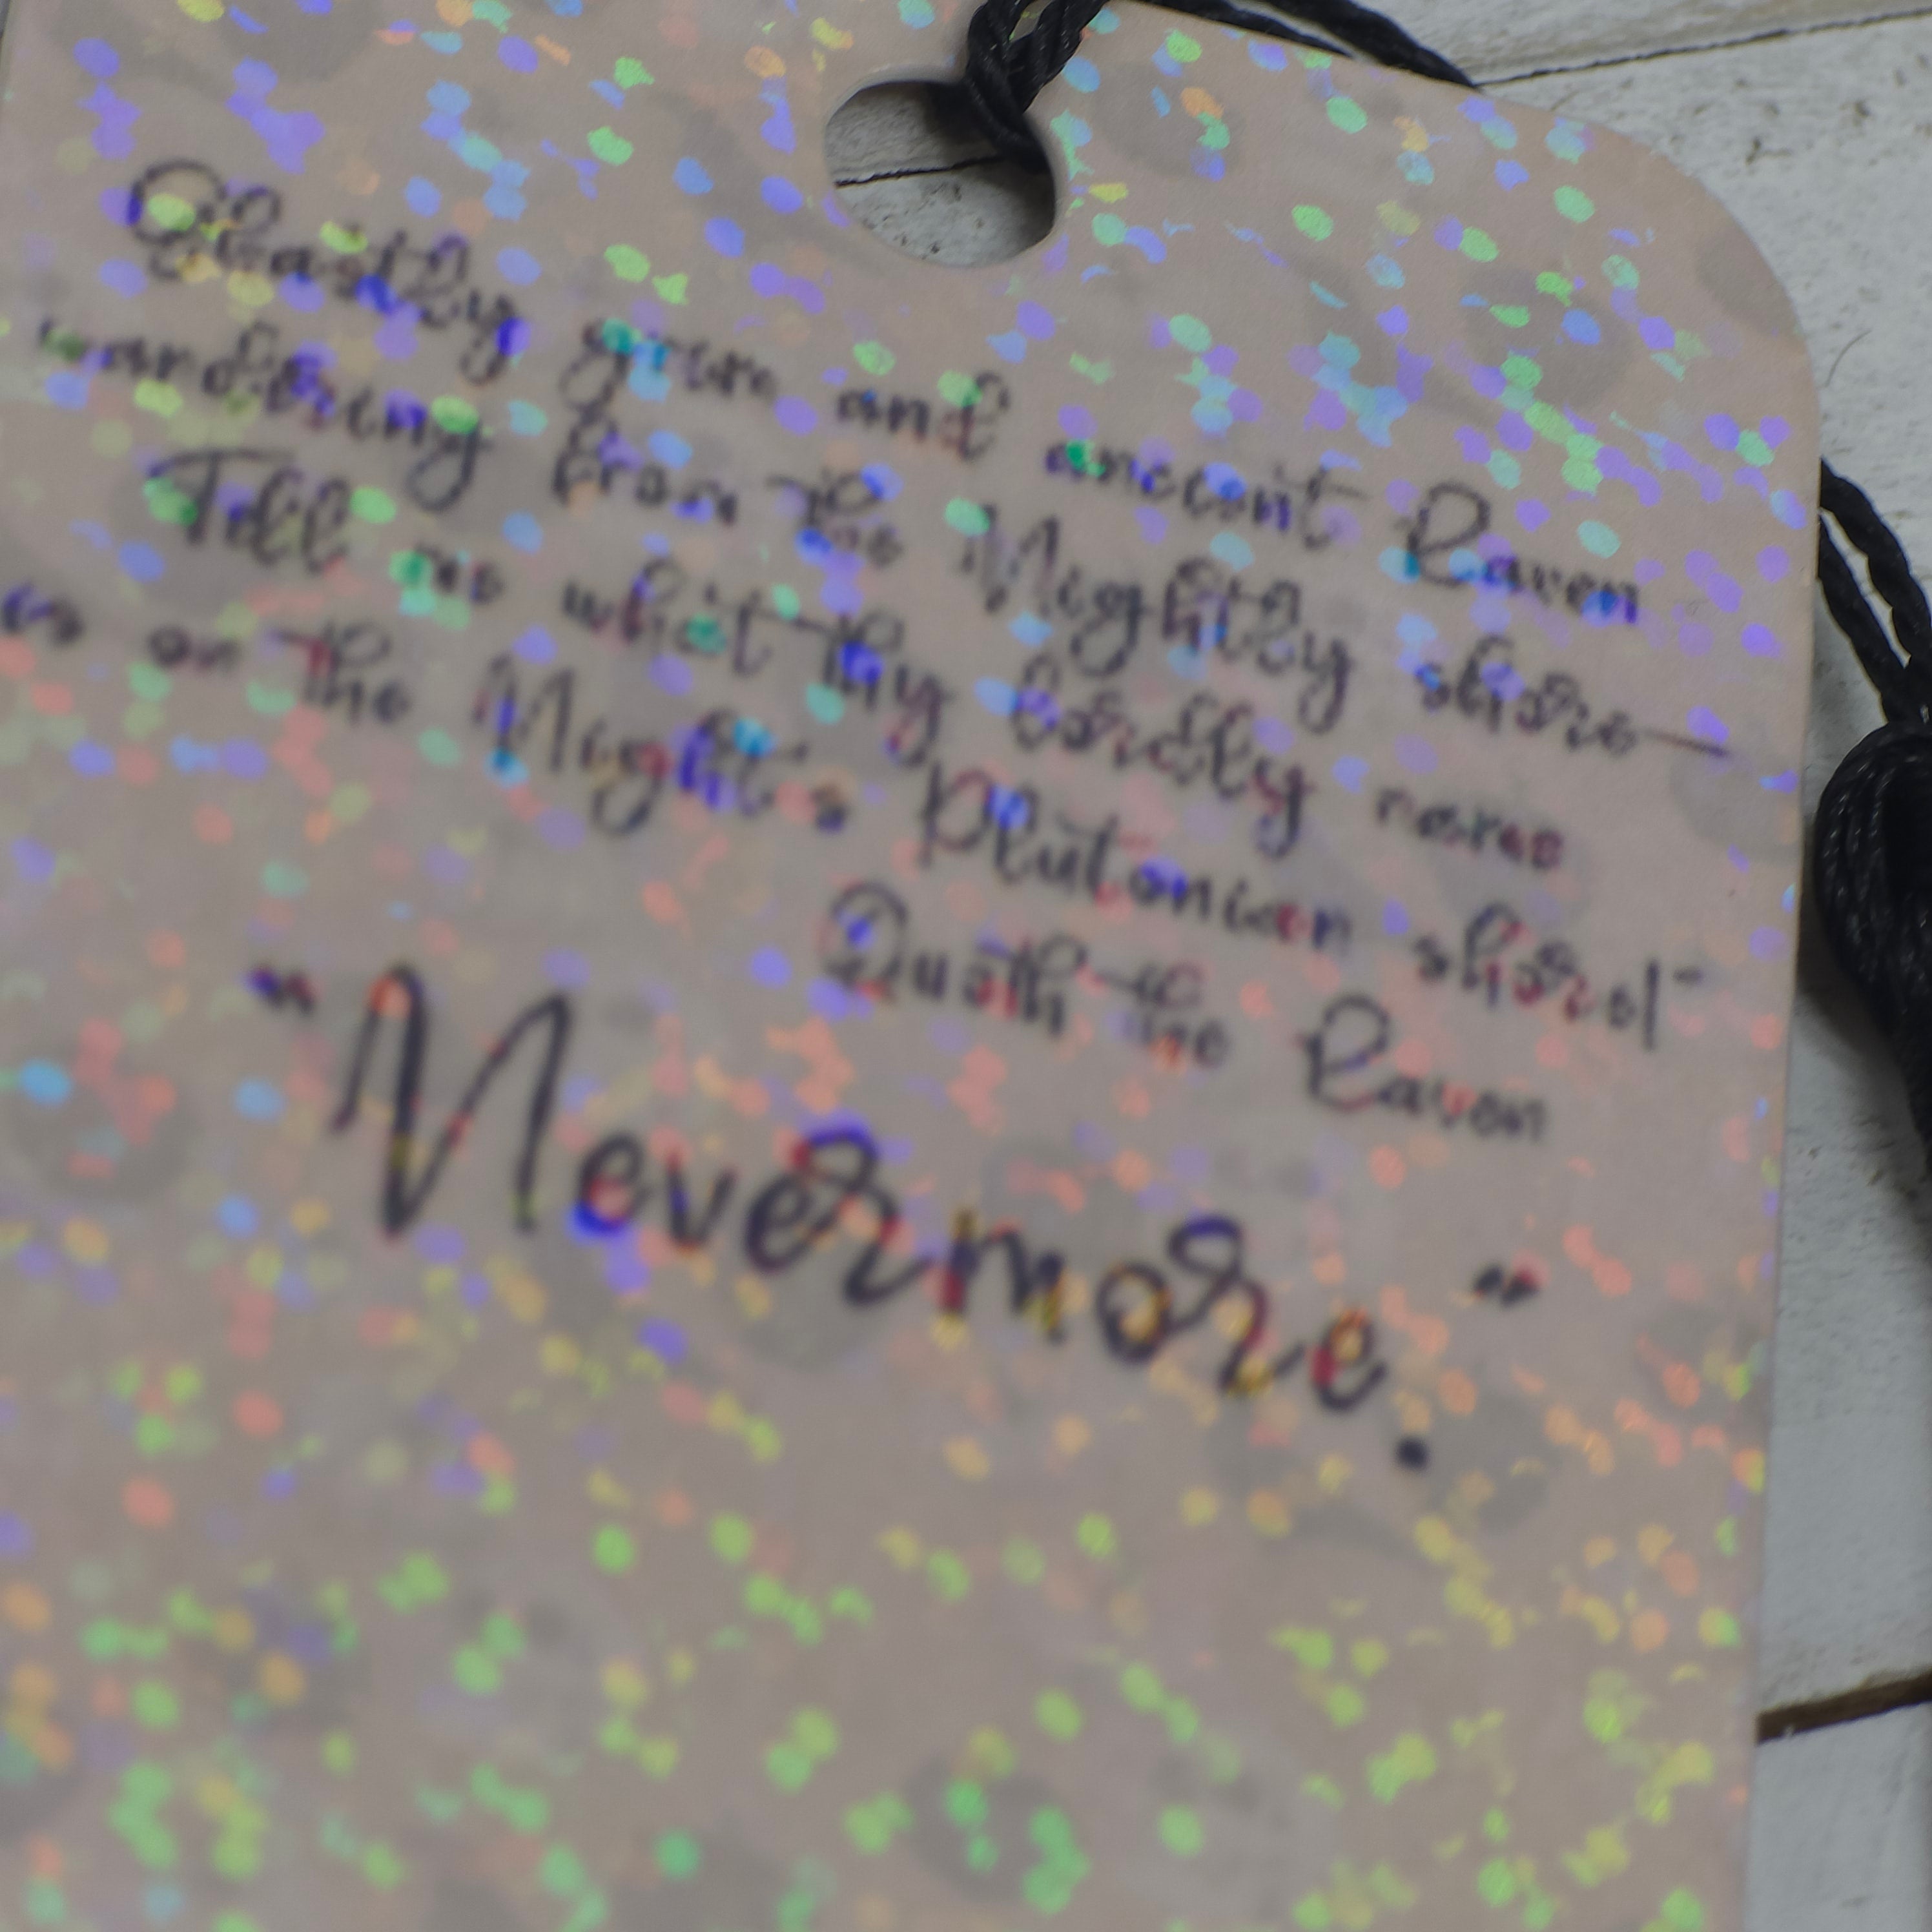 Ghastly grim and ancient Raven
wandering from the Nightly shore—
Tell me what thy lordly name
is on the Night's Plutonian shore!"
Quoth the Raven
"Nevermore."